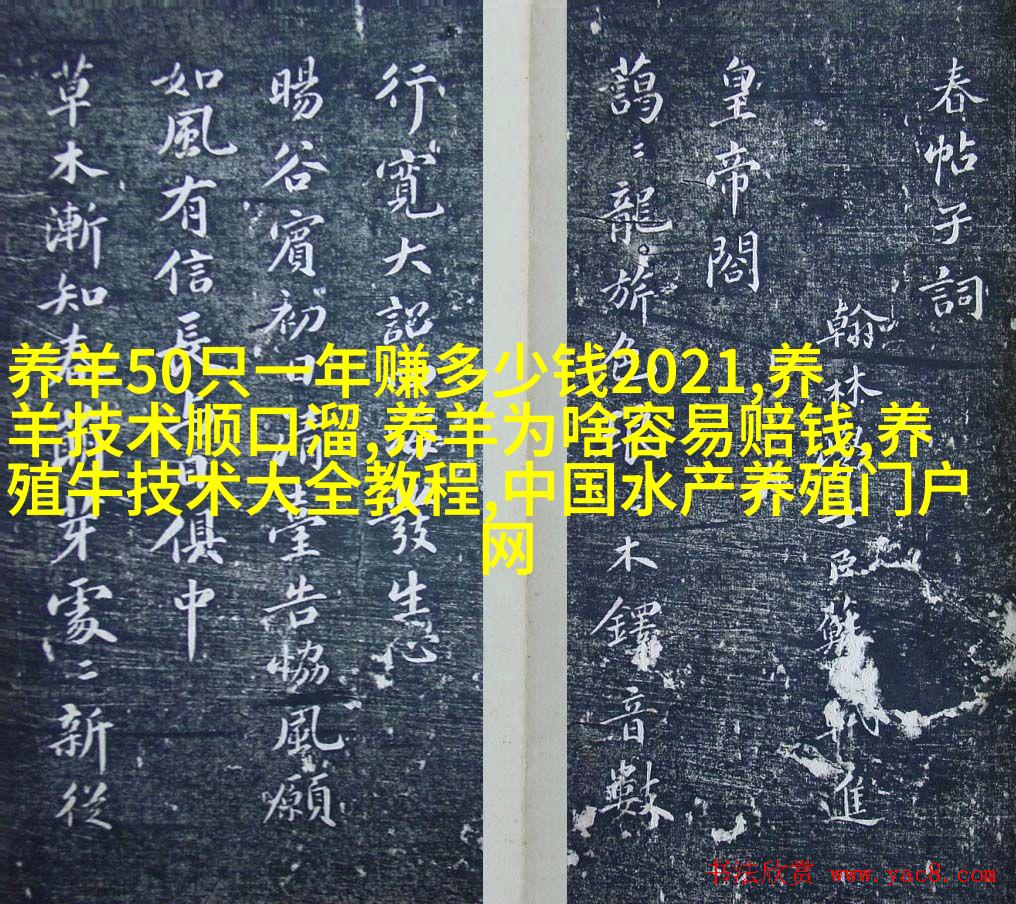 春帖子詞
翰林 臣蘇軾進
皇帝閤
藹〻龍旂色 木鐸音數
行寬大詔 發生心
暘谷賓初日清臺告協風願
如風有信長 日俱中
草木漸知春 芽處〻新從
养羊50只一年赚多少钱2021,养
羊技术顺口溜,养羊为啥容易赔钱,养
殖牛技术大全教程,中国水产养殖门户
网
书法欣赏 www.yac8.com